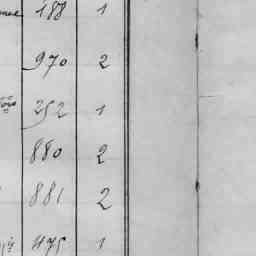 188 1
970 2
252 1
880 2
881 2
475 1